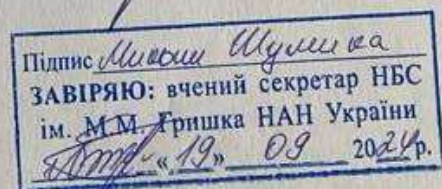 Підпис Миколи Шумика
ЗАВІРЯЮ: вчений секретар НБС
ім. М.М. Гришка НАН України
«19» 09 2024р.